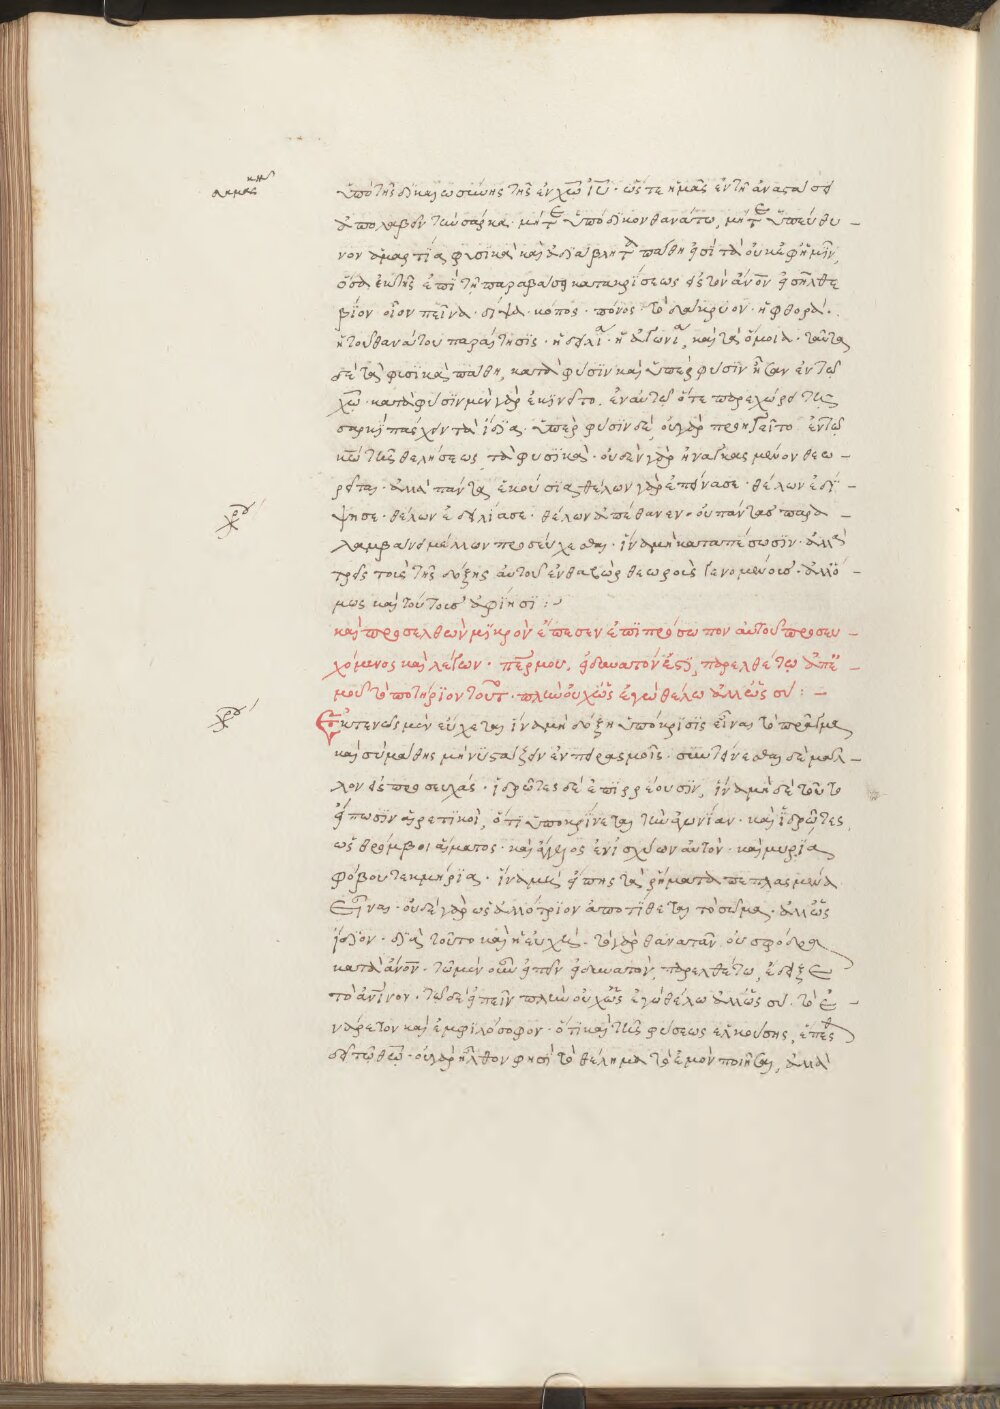 δαμασκην
ὑπὸ τῆς δικαιωσύνης τῆς ἐν χω ἰυ· ὥστε ἡμᾶς ἐν τῇ ἀναστάσει
ἀπολαβεῖν τὴν σάρκα· μήτε ὑπόδικον θανάτω, μήτε ὑπεύθυ–
νον ἁμαρτίας φυσικὰ καὶ ἀδιάβλητα πάθη εἰσὶ τὰ οὐκ ἐφ ἡμῖν,
ὅσα ἐκ τῆς ἐπὶ τῇ παραβάσει κατακρίσεως εἰς τὸν ἀνον εἰσῆλθε
βίον· οἷον πεῖνα· δίψα· κόπος· πόνος· τὸ δάκρυον· ἡ φθορά·
ἡ τοῦ θανάτου παραίτησις· ἡ δειλία· ἡ ἀγωνία, καὶ τὰ ὅμοια· ταῦτα
δὲ τὰ φυσικὰ πάθη, κατὰ φύσιν καὶ ὑπὲρ φύσιν ἦσαν ἐν τῷ
χω· κατὰ φύσιν μὲν γὰρ ἐκινεῖτο ἐν αὐτῷ ὅτε παρεχώρει τῇ
σαρκὶ παθεῖν τὰ ἴδια· ὑπὲρ φύσιν δὲ, οὐ γὰρ προηγεῖτο ἐν τῷ
κω τῆς θελήσεως τὰ φυσικὰ· οὐδὲν γὰρ ἠναγκασμένον θεω–
ρεῖται· ἀλλὰ πάντα ἑκούσια· θέλων γὰρ ἐπείνασε· θέλων ἐδί–
χρου
ψησε· θέλων ἐδειλίασε· θέλων ἀπέθανεν· οὐ πάντας παρα–
λαμβάνει μέλλων προσεύχεσθαι· ἵνα μὴ καταπέσωσιν· ἀλλὰ
τρεῖς τοὺς τῆς δόξης αὐτοῦ ἐν θαβὼρ θεωροὺς γενομένους· ἀλλ ὅ–
μως καὶ τούτους ἀφίησι:
καὶ προσελθὼν μικρὸν ἔπεσεν ἐπὶ πρόσωπον αὐτοῦ προσευ–
χόμενος καὶ λέγων· περ μου, εἰ δυνατόν ἐστι, παρελθέτω ἀπ ἐ–
μοῦ τὸ ποτήριον τοῦτο· πλὴν οὐχ ὡς ἐγὼ θέλω ἀλλ ὡς σύ:–
χρου
Ἐκτενῶς μὲν εὔχεται ἵνα μὴ δόξῃ ὑπόκρισις εἶναι τὸ πρᾶγμα
καὶ σὺ μάθῃς μὴ νυστάζειν ἐν πειρασμοῖς· συντείνεσθαι δὲ μᾶλ–
λον εἰς προσευχάς· ἱδρῶτες δὲ ἐπιρρέουσιν, ἵνα μὴ δὲ τοῦτο
εἴπωσιν αἱρετικοὶ, ὅτι ὑποκρίνεται τὴν ἀγωνίαν· καὶ ἱδρῶτες,
ὡς θρόμβοι αἵματος· καὶ ἄγγελος ἐνισχύων αὐτὸν· καὶ μυρία
φόβου τεκμήρια· ἵνα μὴ εἴπῃς τὰ ῥήματα πεπλασμένα
εἶναι· οὐδὲ γὰρ ὡς ἀλλότριον ἀποτίθεται τὸ σῶμα· ἀλλ ὡς
ἴδιον· διὰ τοῦτο καὶ ἡ εὐχὴ· τὸ γὰρ θανατᾶν οὐ σφόδρα
κατὰ ἀνον· τῷ μὲν οὖν εἰπεῖν εἰ δυνατὸν, παρελθέτω, ἔδειξε
τὸ ἀνινον· τῷ δὲ εἰπεῖν πλὴν οὐχ ὡς ἐγὼ θέλω ἀλλ ὡς σύ· τὸ ἐ–
νάρετον καὶ ἐμφιλόσοφον· ὅτι καὶ τῆς φύσεως ἑλκούσης, ἕπεσθαι
δεῖ τῷ θω· οὐ γὰρ ἦλθον φησὶ τὸ θέλημα τὸ ἐμὸν ποιῆσαι, ἀλλὰ